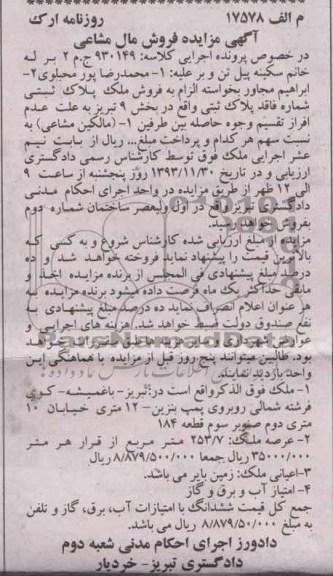 م الف ۱۷۵۷۸ روزنامه ارک
آگهی مزایده فروش مال مشاعی
در خصوص پرونده اجرایی کلاسه: ۹۳۰۱۴۹ ج.م ۲ بر له
خانم سکینه پیل تن و بر علیه: ۱- محمدرضا پور محبلوی۲-
ابراهیم مجاور بخواسته الزام به فروش ملک پلاک ثبتی
شماره فاقد پلاک ثبتی واقع در بخش ۹ تبریز به علت عدم
افراز تقسیم وجوه حاصله بین طرفین ۱- (مالکین مشاعی) به
نسبت سهم هر کدام و پرداخت مبلغ... ریال از بابت نیم
عشر اجرایی ملک فوق توسط کارشناس رسمی دادگستری
ارزیابی و در تاریخ ۱۳۹۳/۱۱/۳۰ روز پنجشنبه از ساعت ۹
الی ۱۲ ظهر از طریق مزایده در واحد اجرای احکام مدنی
دادگستری تبریز واقع در اول ولیعصر ساختمان شماره دوم
بفروش خواهد رسید.
مزایده از مبلغ ارزیابی شده کارشناس شروع و به کسی که
بالاترین قیمت را پیشنهاد نماید فروخته خواهد شد و ده
درصد مبلغ پیشنهادی فی المجلس از برنده مزایده اخذ و
مابقی حداکثر یک ماه فرصت داده میشود برنده مزایده به
هر عنوان اعلام انصراف نماید ده درصد مبلغ پیشنهادی به
نفع صندوق دولت ضبط خواهد شد. هزینه های اجرایی و
عوارض شهرداری و سایر هزینه ها طبق مقررات خواهد
بود. طالبین میتوانند پنج روز قبل از مزایده با هماهنگی این
واحد بازدید نمایند.
۱- ملک فوق الذکر واقع است در:تبریز- باغمیشه- کوی
فرشته شمالی روبروی پمپ بنزین- ۱۲ متری خیابان ۱۰
متری دوم صنوبر سوم قطعه ۱۸۴
۲- عرصه ملک: ۲۵۳/۷ متر مربع از قرار هر متر
۳۵/۰۰۰/۰۰۰ ریال جمعا ۸/۸۷۹/۵۰۰/۰۰۰ ریال
۳-اعیانی ملک: زمین بایر می باشد.
۴- امتیاز آب و برق و گاز
جمع کل قیمت ششدانگ با امتیازات آب، برق، گاز و تلفن
به مبلغ ۸/۸۷۹/۵۰/۰۰۰ ریال می باشد.
دادورز اجرای احکام مدنی شعبه دوم
دادگستری تبریز- خردیار